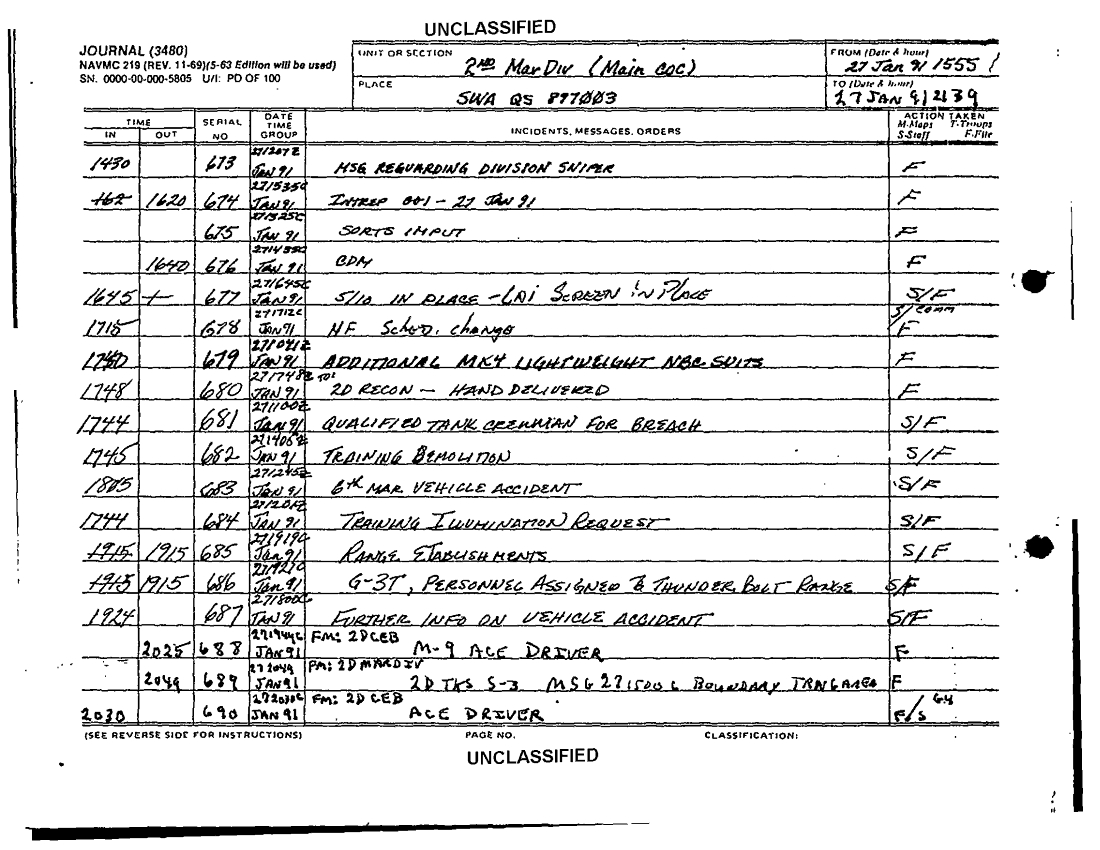 UNCLASSIFIED
JOURNAL (3480)
NAVMC 219 (REV. 11-69)(5-63 Edition will be used)
SN. 0000-00-000-5805 U/I: PD OF 100
UNIT OR SECTION
2ND MarDiv (Main COC)
FROM (Date & hour)
27 Jan 91 1555
PLACE
SWA QS 897003
TO (Date & hour)
27 JAN 91 2139
TIME IN OUT SERIAL NO DATE TIME GROUP INCIDENTS, MESSAGES, ORDERS ACTION TAKEN M-Maps T-Troops S-Staff F-File
1430 673 271207Z JAN 91 MSG REGUARDING DIVISION SNIPER F
162 1620 674 271535C JAN 91 INTREP 001 - 27 JAN 91 F
675 271325C JAN 91 SORTS IMPUT F
1640 676 271435C JAN 91 CDM F
1645 677 271645C JAN 91 5/10 IN PLACE - LAI SCREEN IN PLACE S/F
1715 678 271712C JAN 91 HF Sched. change S/COMM F
679 271041Z JAN 91 ADDITIONAL MK4 LIGHTWEIGHT NBC SUITS F
1748 680 271748C JAN 91 TO: 2D RECON - HAND DELIVERED F
1744 681 271100Z JAN 91 QUALIFIED TANK CREWMAN FOR BREACH S/F
1745 682 271406Z JAN 91 TRAINING DEMOLITION S/F
1805 683 271245Z JAN 91 6th MAR VEHICLE ACCIDENT S/F
1744 684 JAN 91 TRAINING ILLUMINATION REQUEST S/F
1915 1915 685 271919C Jan 91 RANGE ETABLISHMENTS S/F
1915 1915 686 271921C Jan 91 G-3T, PERSONNEL ASSIGNED TO THUNDER BOLT RANGE S/F
1924 687 271800C JAN 91 FURTHER INFO ON VEHICLE ACCIDENT S/F
2025 688 271944C JAN 91 FM: 2D CEB M-9 ACE DRIVER F
2049 689 272049 JAN 91 FM: 2D MARDIV 2D TKS S-3 MSG 271500C BOUNDARY TRNG AREA F
2030 690 272030C JAN 91 FM: 2D CEB ACE DRIVER F/S G4
(SEE REVERSE SIDE FOR INSTRUCTIONS) PAGE NO. CLASSIFICATION:
UNCLASSIFIED